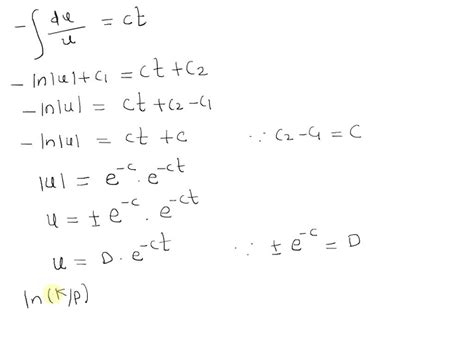 -∫ du/u = ct
-ln|u| + c₁ = ct + c₂
-ln|u| = ct + c₂ - c₁
-ln|u| = ct + c ∵ c₂ - c₁ = c
|u| = e^{-c} · e^{-ct}
u = ± e^{-c} · e^{-ct}
u = D · e^{-ct} ∵ ± e^{-c} = D
ln(K/P)